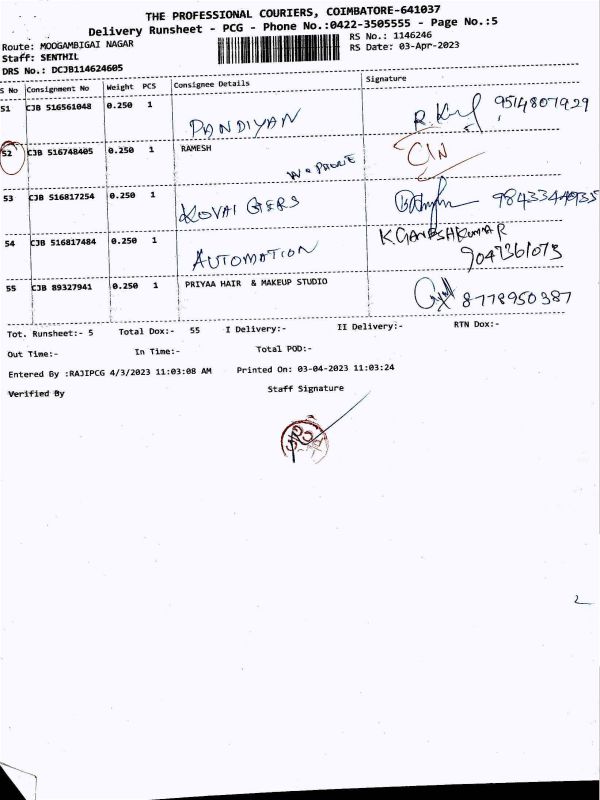 THE PROFESSIONAL COURIERS, COIMBATORE-641037
Delivery Runsheet - PCG - Phone No.:0422-3505555 - Page No.:5
Route: MOOGAMBIGAI NAGAR
RS No.: 1146246
Staff: SENTHIL
RS Date: 03-Apr-2023
DRS No.: DCJB114624605
S No Consignment No Weight PCS Consignee Details Signature
51 CJB 516561048 0.250 1 PANDIYAN 9514807929
52 CJB 516748405 0.250 1 RAMESH
53 CJB 516817254 0.250 1 KOVAI GEERS
54 CJB 516817484 0.250 1 AUTOMATION K GANESHKUMAR
9047361073
55 CJB 89327941 0.250 1 PRIYAA HAIR & MAKEUP STUDIO 8778950387
Tot. Runsheet:- 5 Total Dox:- 55 I Delivery:- II Delivery:- RTN Dox:-
Out Time:- In Time:- Total POD:-
Entered By :RAJIPCG 4/3/2023 11:03:08 AM Printed On: 03-04-2023 11:03:24
Verified By Staff Signature